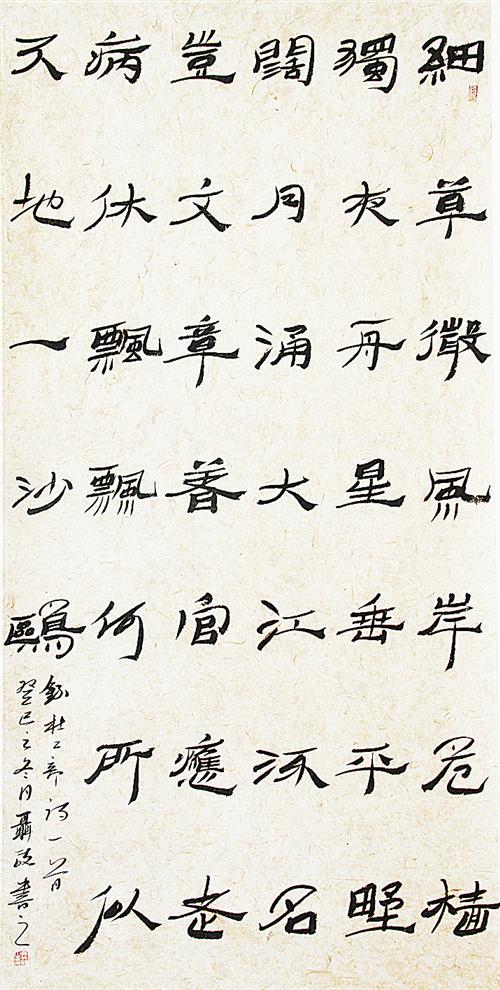 細草微風岸危檣
獨夜舟星垂平野
闊月涌大江流名
豈文章著官應老
病休飄飄何所似
天地一沙鷗
錄杜工部詩一首
癸巳之冬月聶書之